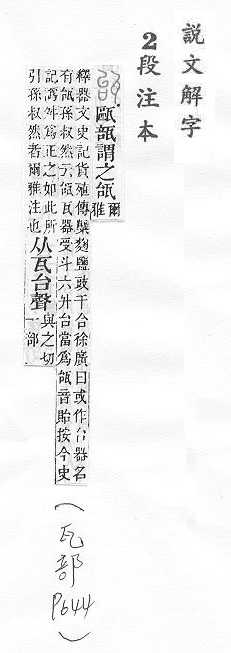 說文解字
2段注本
甌瓿謂之瓵
爾
雅
釋器文史記貨殖傳糱麴鹽豉千合徐廣曰或作台器名
有瓵孫叔然云瓵瓦器受斗六升台當爲瓵音貽按今史
記譌舛爲正之如此所
引孫叔然者爾雅注也
从瓦台聲
與之切
一部
(瓦部 P644)